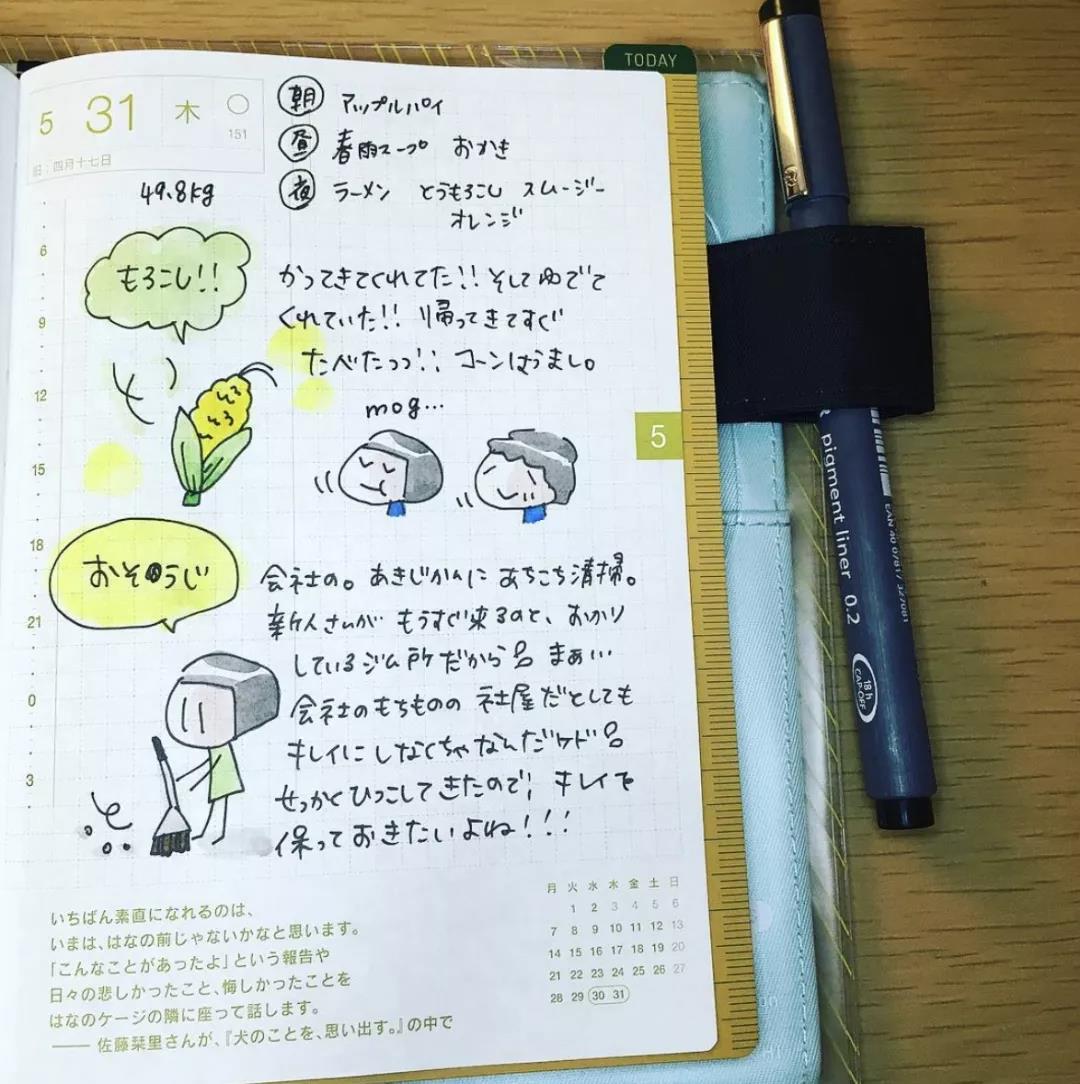 TODAY
5 31 木
151
旧:四月十七日
49.8kg
朝 アップルパイ
昼 春雨スープ おかき
夜 ラーメン とうもろこし スムージー
オレンジ
もろこし!!
かってきてくれてた!! そしてゆでて
くれていた!! 帰ってきてすぐ
たべたっっ!! コーンはうまし。
mog...
6
9
12
15
18
21
0
3
5
おそうじ
会社の。あきじかんに あちこち清掃。
新人さんが もうすぐ来るのと、おかり
しているジム所だから まぁ…
会社のもちものの 社屋だとしても
キレイにしなくちゃなんだケド
せっかくひっこしてきたので! キレイで
保っておきたいよね!!!
いちばん素直になれるのは、
いまは、はなの前じゃないかなと思います。
「こんなことがあったよ」という報告や
日々の悲しかったこと、悔しかったことを
はなのケージの隣に座って話します。
── 佐藤栞里さんが、『犬のことを、思い出す。』の中で
月 火 水 木 金 土 日
1 2 3 4 5 6
7 8 9 10 11 12 13
14 15 16 17 18 19 20
21 22 23 24 25 26 27
28 29 30 31
pigment liner 0.2
18 h
CAP-OFF